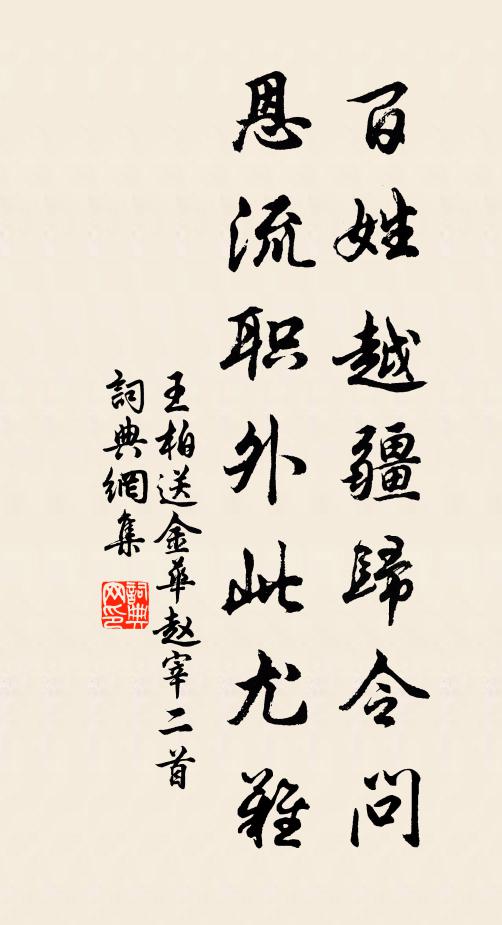 百姓越疆歸令問
恩流职外此尤難
王柏送金華赵宰二首
詞典網集
詞典网印